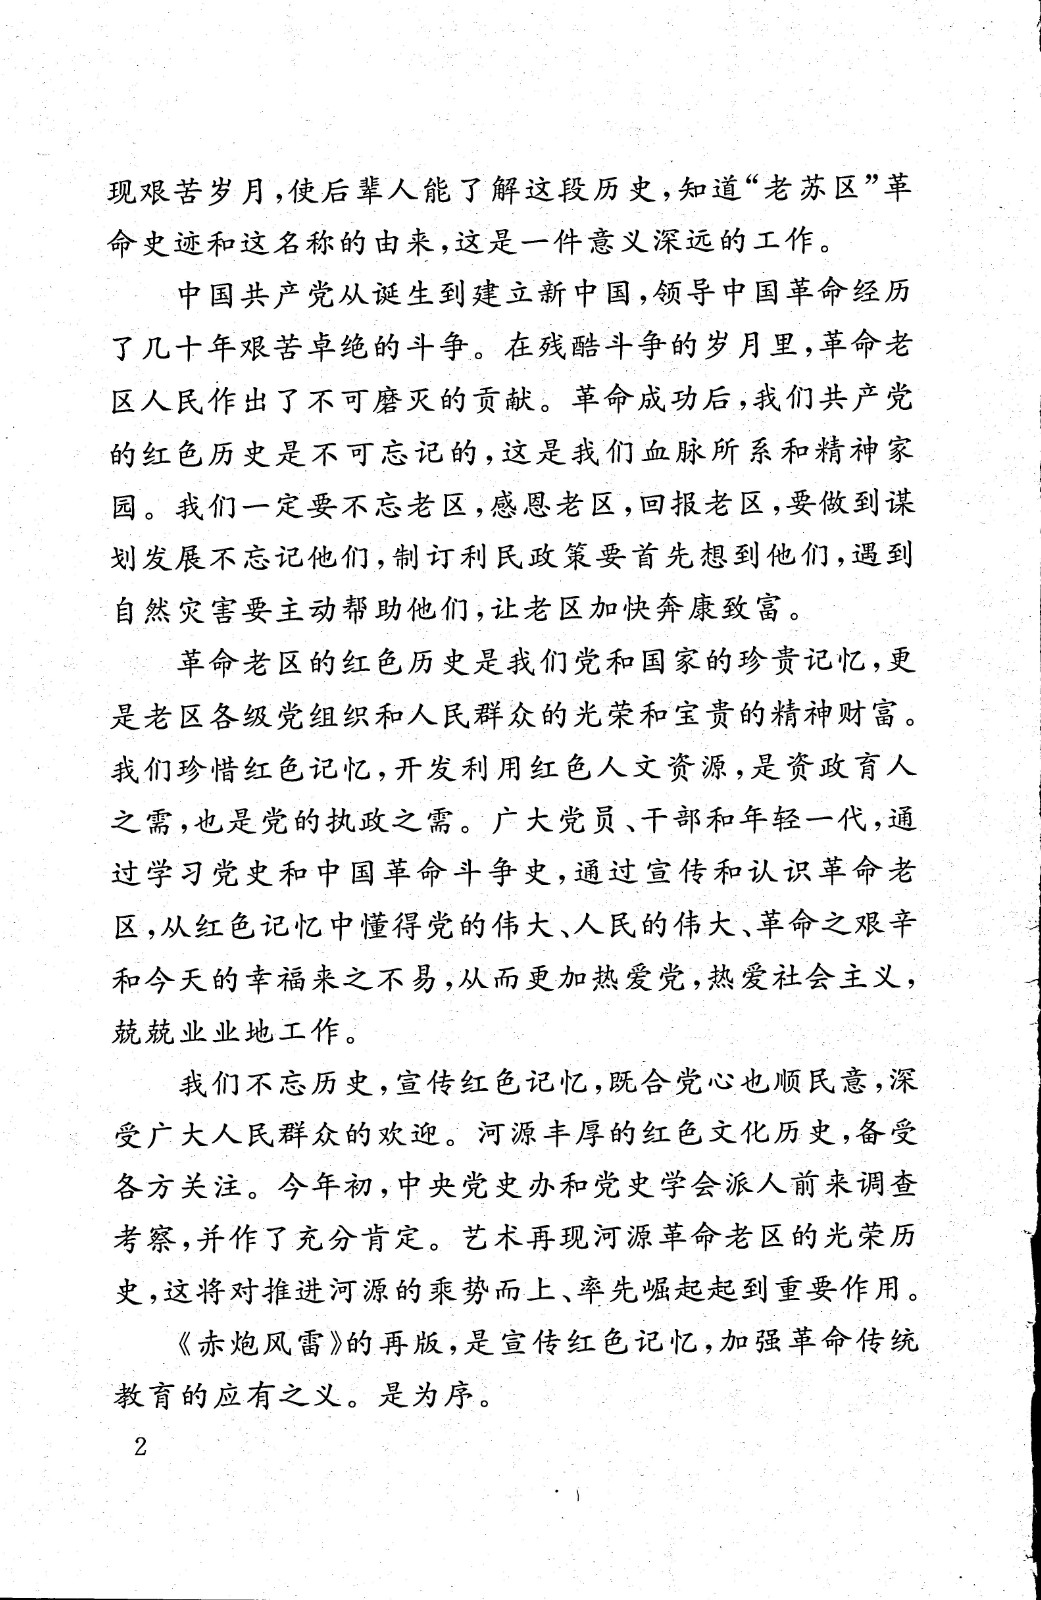 现艰苦岁月,使后辈人能了解这段历史,知道“老苏区”革
命史迹和这名称的由来,这是一件意义深远的工作。
中国共产党从诞生到建立新中国,领导中国革命经历
了几十年艰苦卓绝的斗争。在残酷斗争的岁月里,革命老
区人民作出了不可磨灭的贡献。革命成功后,我们共产党
的红色历史是不可忘记的,这是我们血脉所系和精神家
园。我们一定要不忘老区,感恩老区,回报老区,要做到谋
划发展不忘记他们,制订利民政策要首先想到他们,遇到
自然灾害要主动帮助他们,让老区加快奔康致富。
革命老区的红色历史是我们党和国家的珍贵记忆,更
是老区各级党组织和人民群众的光荣和宝贵的精神财富。
我们珍惜红色记忆,开发利用红色人文资源,是资政育人
之需,也是党的执政之需。广大党员、干部和年轻一代,通
过学习党史和中国革命斗争史,通过宣传和认识革命老
区,从红色记忆中懂得党的伟大、人民的伟大、革命之艰辛
和今天的幸福来之不易,从而更加热爱党,热爱社会主义,
兢兢业业地工作。
我们不忘历史,宣传红色记忆,既合党心也顺民意,深
受广大人民群众的欢迎。河源丰厚的红色文化历史,备受
各方关注。今年初,中央党史办和党史学会派人前来调查
考察,并作了充分肯定。艺术再现河源革命老区的光荣历
史,这将对推进河源的乘势而上、率先崛起起到重要作用。
《赤炮风雷》的再版,是宣传红色记忆,加强革命传统
教育的应有之义。是为序。
2